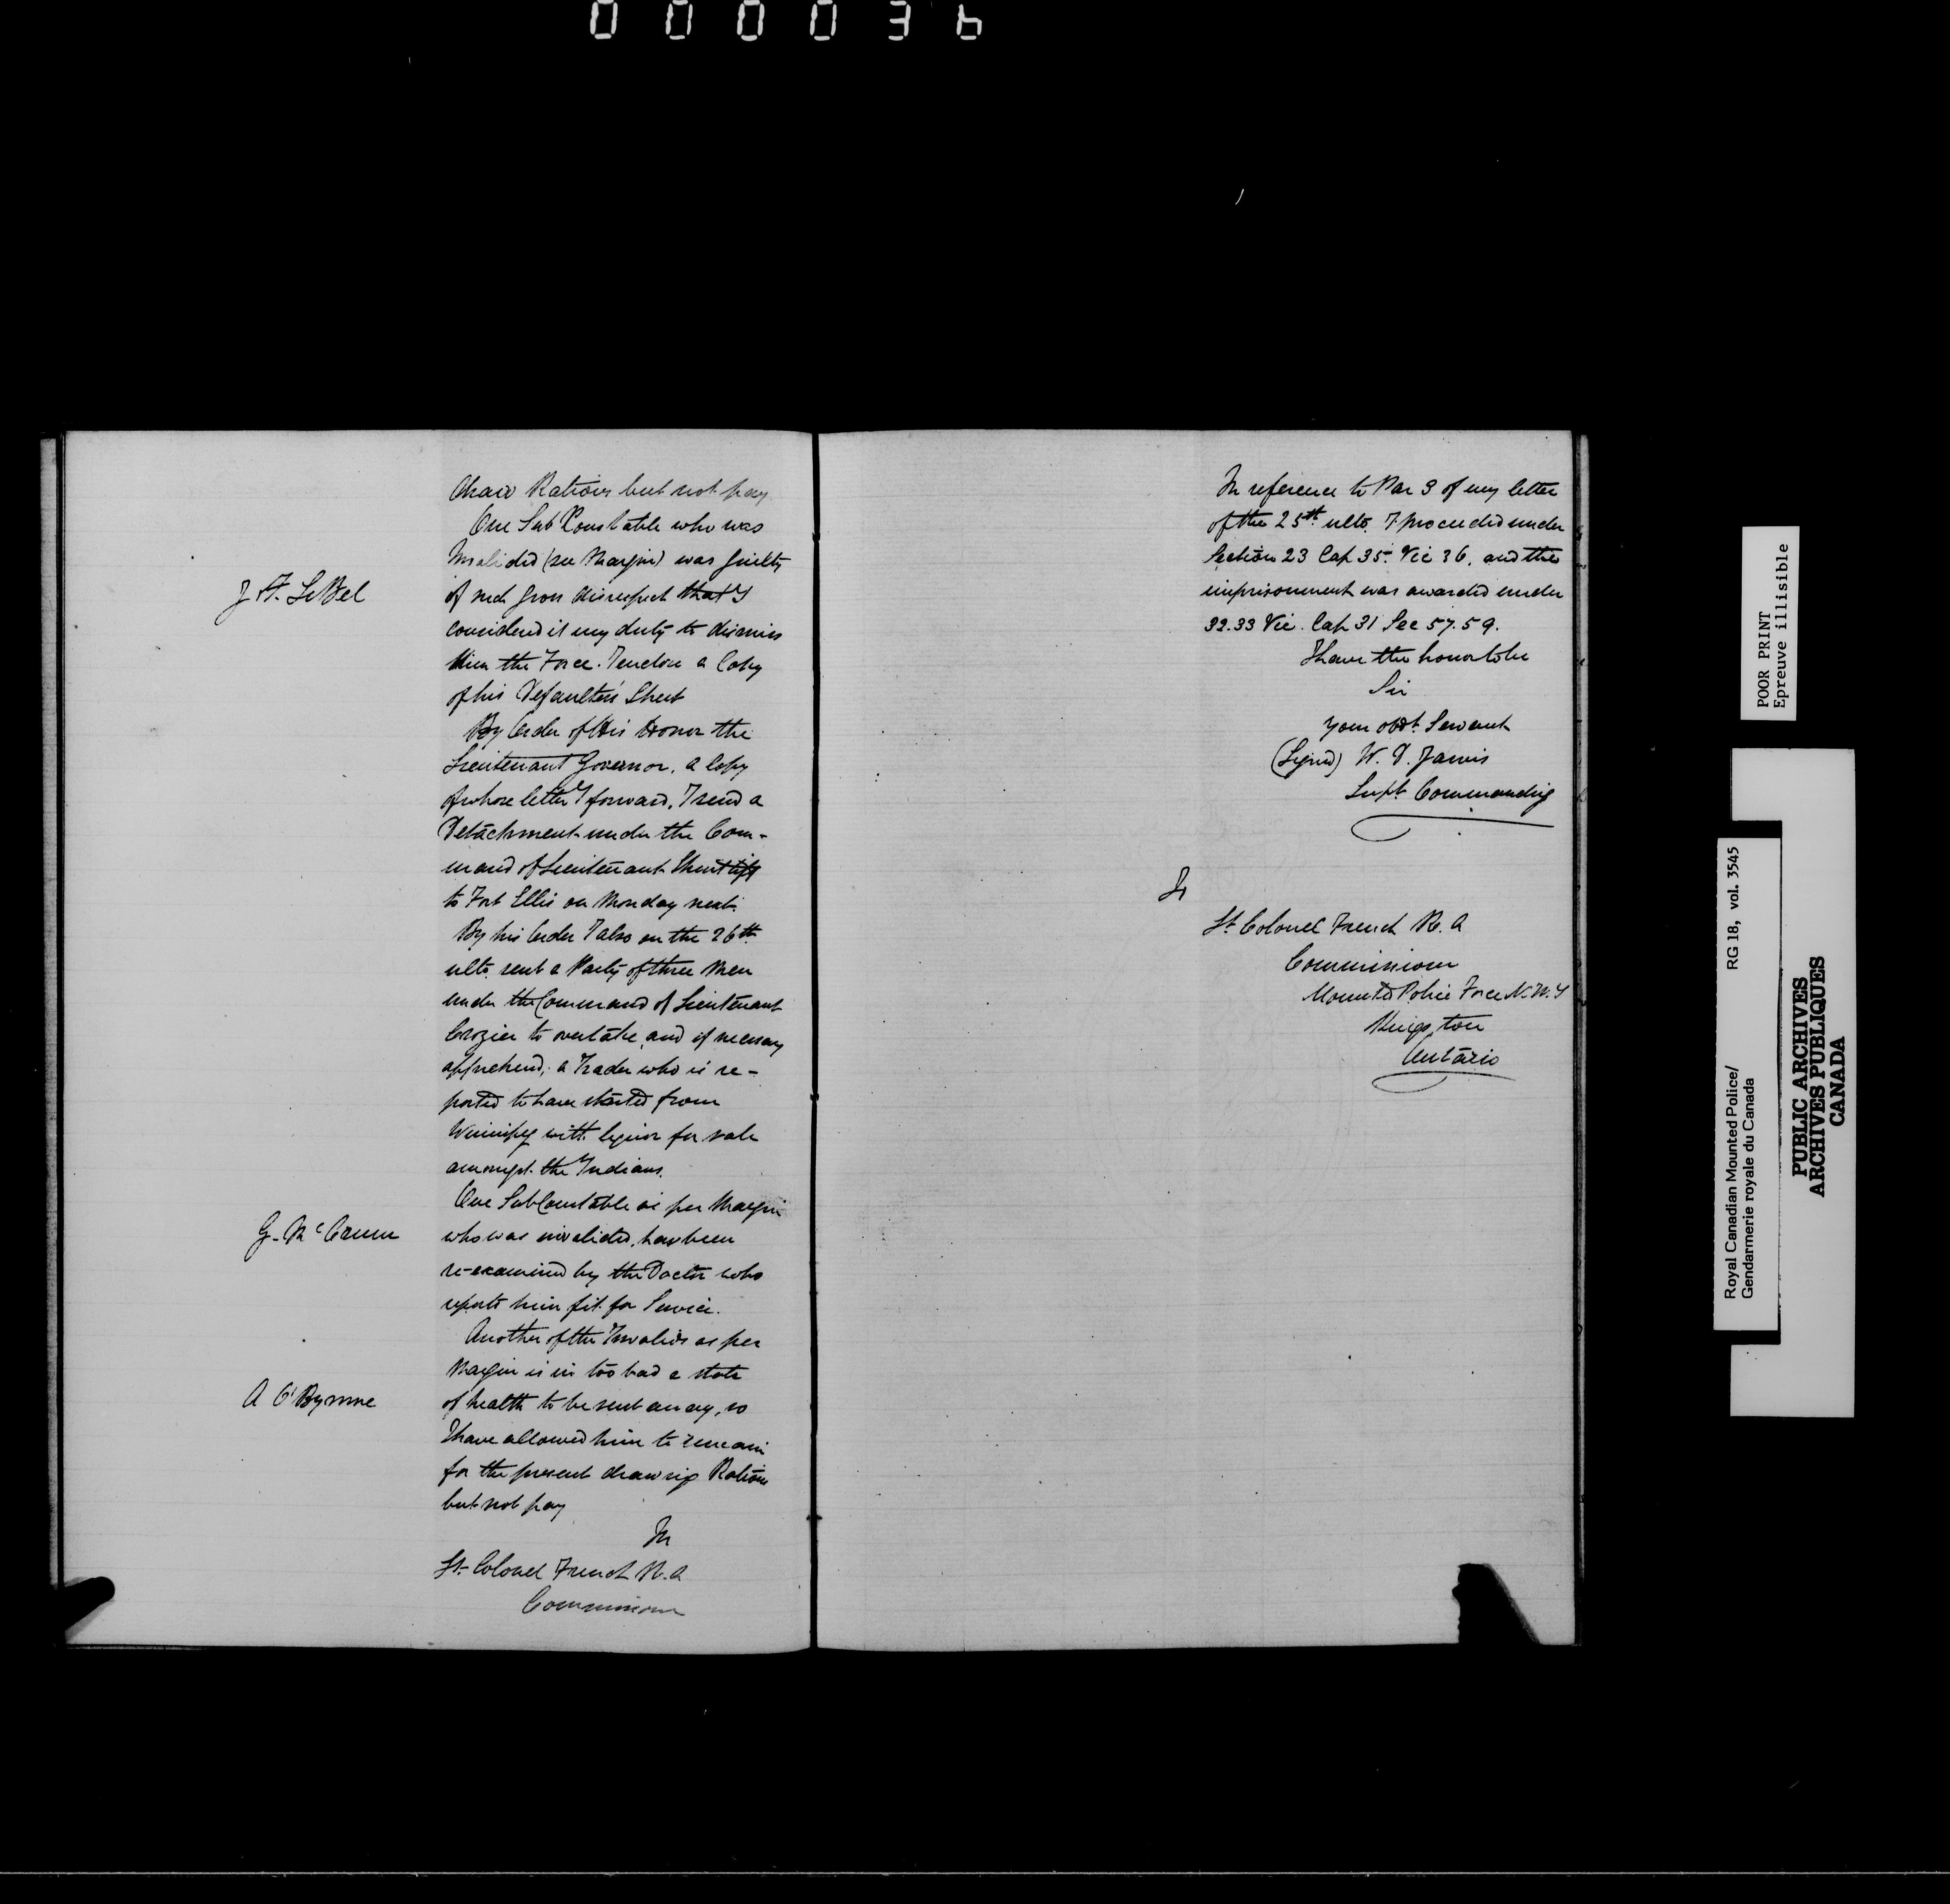 000036
draw Rations but not pay.
One Sub Constable who was
Invalided (see Margin) was guilty
J F. LeBel
of such gross disrespect that I
considered it my duty to dismiss
him the Force. I enclose a Copy
of his Defaulters Sheet
By Order of His Honor the
Lieutenant Governor, a Copy
of whose letter I forward, I send a
Detachment under the Com-
mand of Lieutenant
to Fort Ellis on Monday next.
By his Order I also on the 26th
ulto. sent a Party of three Men
under the Command of Lieutenant
Crozier to overtake, and if necessary
apprehend, a Trader who is re-
ported to have started from
Winnipeg with liquor for sale
amongst the Indians.
One SubConstable as per Margin
G. McCrum
who was invalided, has been
re-examined by the Doctor who
reports him fit for Service.
Another of the Invalids as per
Margin is in too bad a state
A O'Byrnne
of health to be sent away, so
I have allowed him to remain
for the present drawing Rations
but not pay
Lt. Colonel French R.A
Commissioner
In reference to Par 3 of my letter
of the 25th ulto. I proceeded under
Section 23 Cap 35. Vic 36, and the
imprisonment was awarded under
32.33 Vic. Cap 31 Sec 57.59.
I have the honor to be
Sir
Your obdt. Servant
(Signed) W. D. Jarvis
Supt. Commanding
Lt. Colonel French R.A
Commissioner
Mounted Police Force N.W.T
Kingston
Ontario
POOR PRINT
Epreuve illisible
Royal Canadian Mounted Police/ RG 18, vol. 3545
Gendarmerie royale du Canada
PUBLIC ARCHIVES
ARCHIVES PUBLIQUES
CANADA